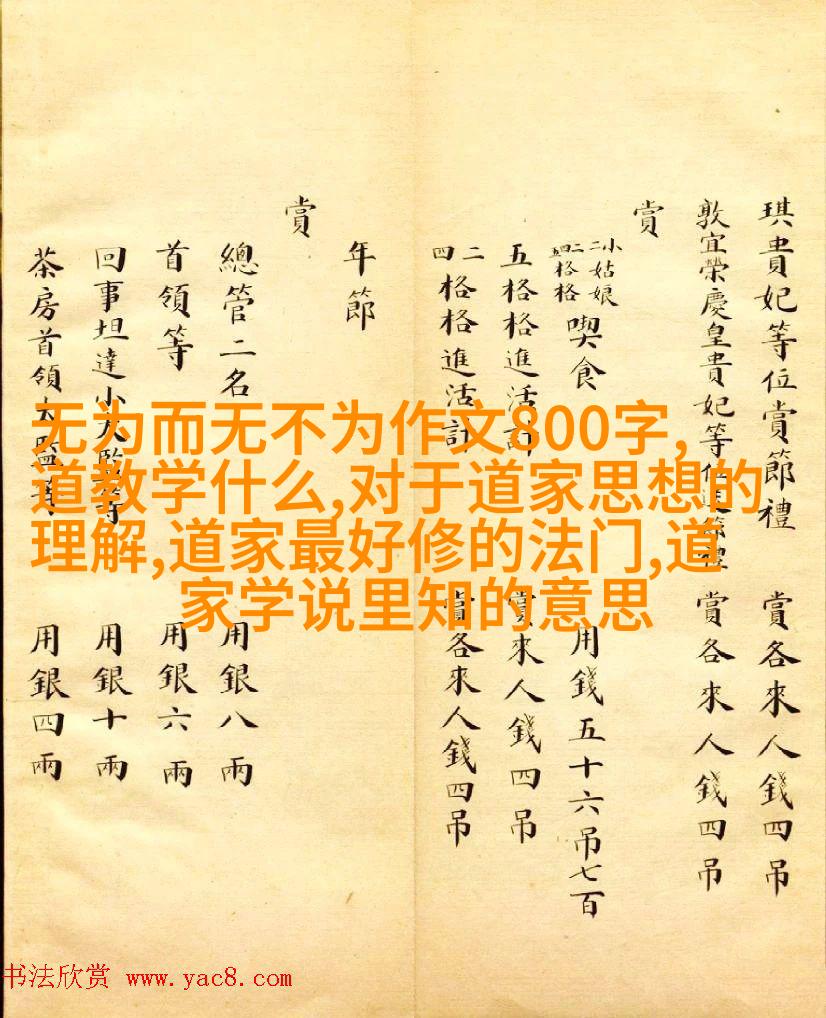 琪貴妃等位賞節禮 賞各來人錢四吊
敦宜榮慶皇貴妃等位進節禮 賞各來人錢四吊
賞
小姑娘 格格 喫食 用錢五十六吊七百
五格格進活計 賞來人錢四吊
二四格格進活計 賞各來人錢四吊
年節
賞
總管二名 用銀八兩
首領等 用銀六兩
回事坦達小太監等 用銀十兩
茶房首領太監等 用銀四兩
无为而无不为作文800字,
道教学什么,对于道家思想的
理解,道家最好修的法门,道
家学说里知的意思
书法欣赏 www.yac8.com